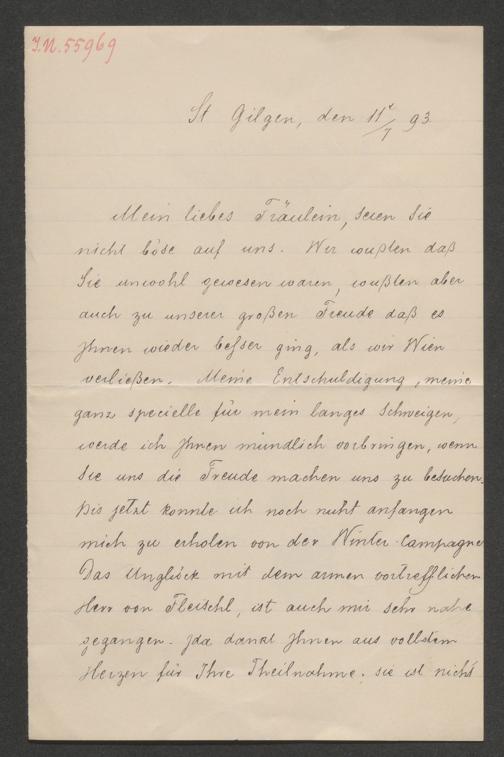 J.N. 55969
St Gilgen, den 11t/7 93
Mein liebes Fräulein, seien Sie
nicht böse auf uns. Wir wußten daß
Sie unwohl gewesen waren, wußten aber
auch zu unserer großen Freude daß es
Ihnen wieder besser ging, als wir Wien
verließen. Meine Entschuldigung, meine
ganz specielle für mein langes Schweigen,
werde ich Ihnen mündlich vorbringen, wenn
Sie uns die Freude machen uns zu besuchen.
Bis jetzt konnte ich noch nicht anfangen
mich zu erholen von der Winter-Campagne
Das Unglück mit dem armen vortrefflichen
Herr von Fleischl, ist auch mir sehr nahe
gegangen. Ida dankt Ihnen aus vollstem
Herzen für Ihre Theilnahme. sie ist nicht